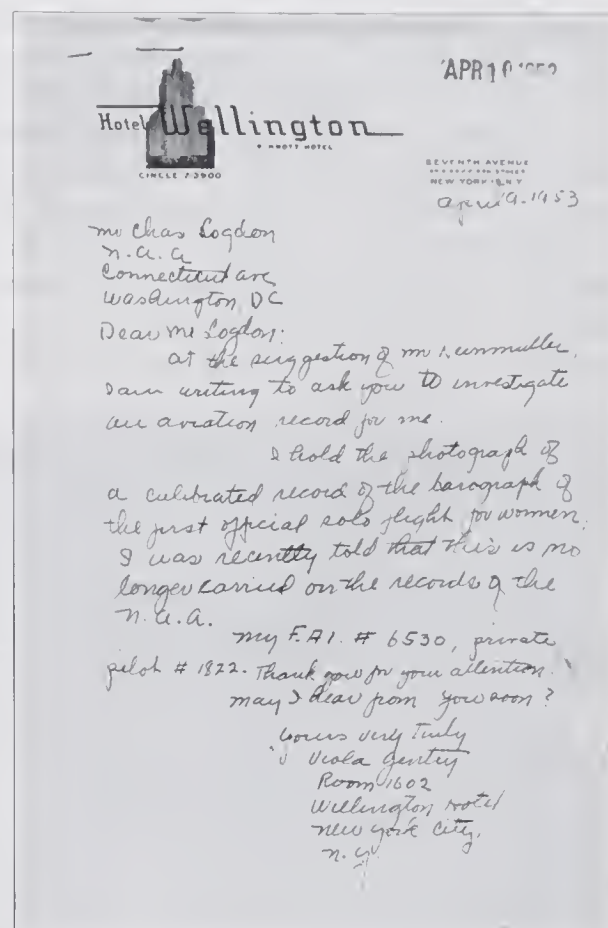 APR 10 1953
Hotel Wellington
A KNOTT HOTEL
CIRCLE 7-3900
SEVENTH AVENUE
NEW YORK 19, N.Y.
April 9. 1953
Mr Chas Logdon
N.A.A
Connecticut ave
Washington, DC
Dear Mr Logdon:
At the suggestion of Mr
I am writing to ask you to investigate
an aviation record for me.
I hold the photograph of
a culibrated record of the barograph of
the first official solo flight for women.
I was recently told that this is no
longer carried on the records of the
N.A.A.
My F.A.I. # 6530, private
pilot # 1822. Thank you for your attention.
May I hear from you soon?
Yours very Truly
Viola Gentry
Room 1602
Wellington Hotel
New York City,
N.Y.